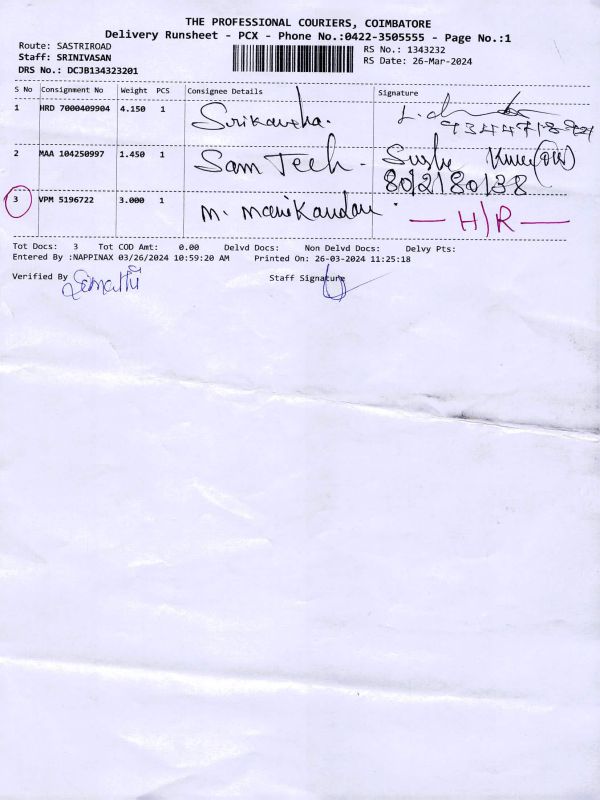 THE PROFESSIONAL COURIERS, COIMBATORE
Delivery Runsheet - PCX - Phone No.:0422-3505555 - Page No.:1
Route: SASTRIROAD
RS No.: 1343232
Staff: SRINIVASAN
RS Date: 26-Mar-2024
DRS No.: DCJB134323201
S No Consignment No Weight PCS Consignee Details Signature
1 HRD 7000409904 4.150 1 Srikantha.
2 MAA 104250997 1.450 1 Sam Tech.
802180138
3 VPM 5196722 3.000 1 M. Manikandan. — H/R —
Tot Docs: 3 Tot COD Amt: 0.00 Delvd Docs: Non Delvd Docs: Delvy Pts:
Entered By :NAPPINAX 03/26/2024 10:59:20 AM Printed On: 26-03-2024 11:25:18
Verified By Staff Signature